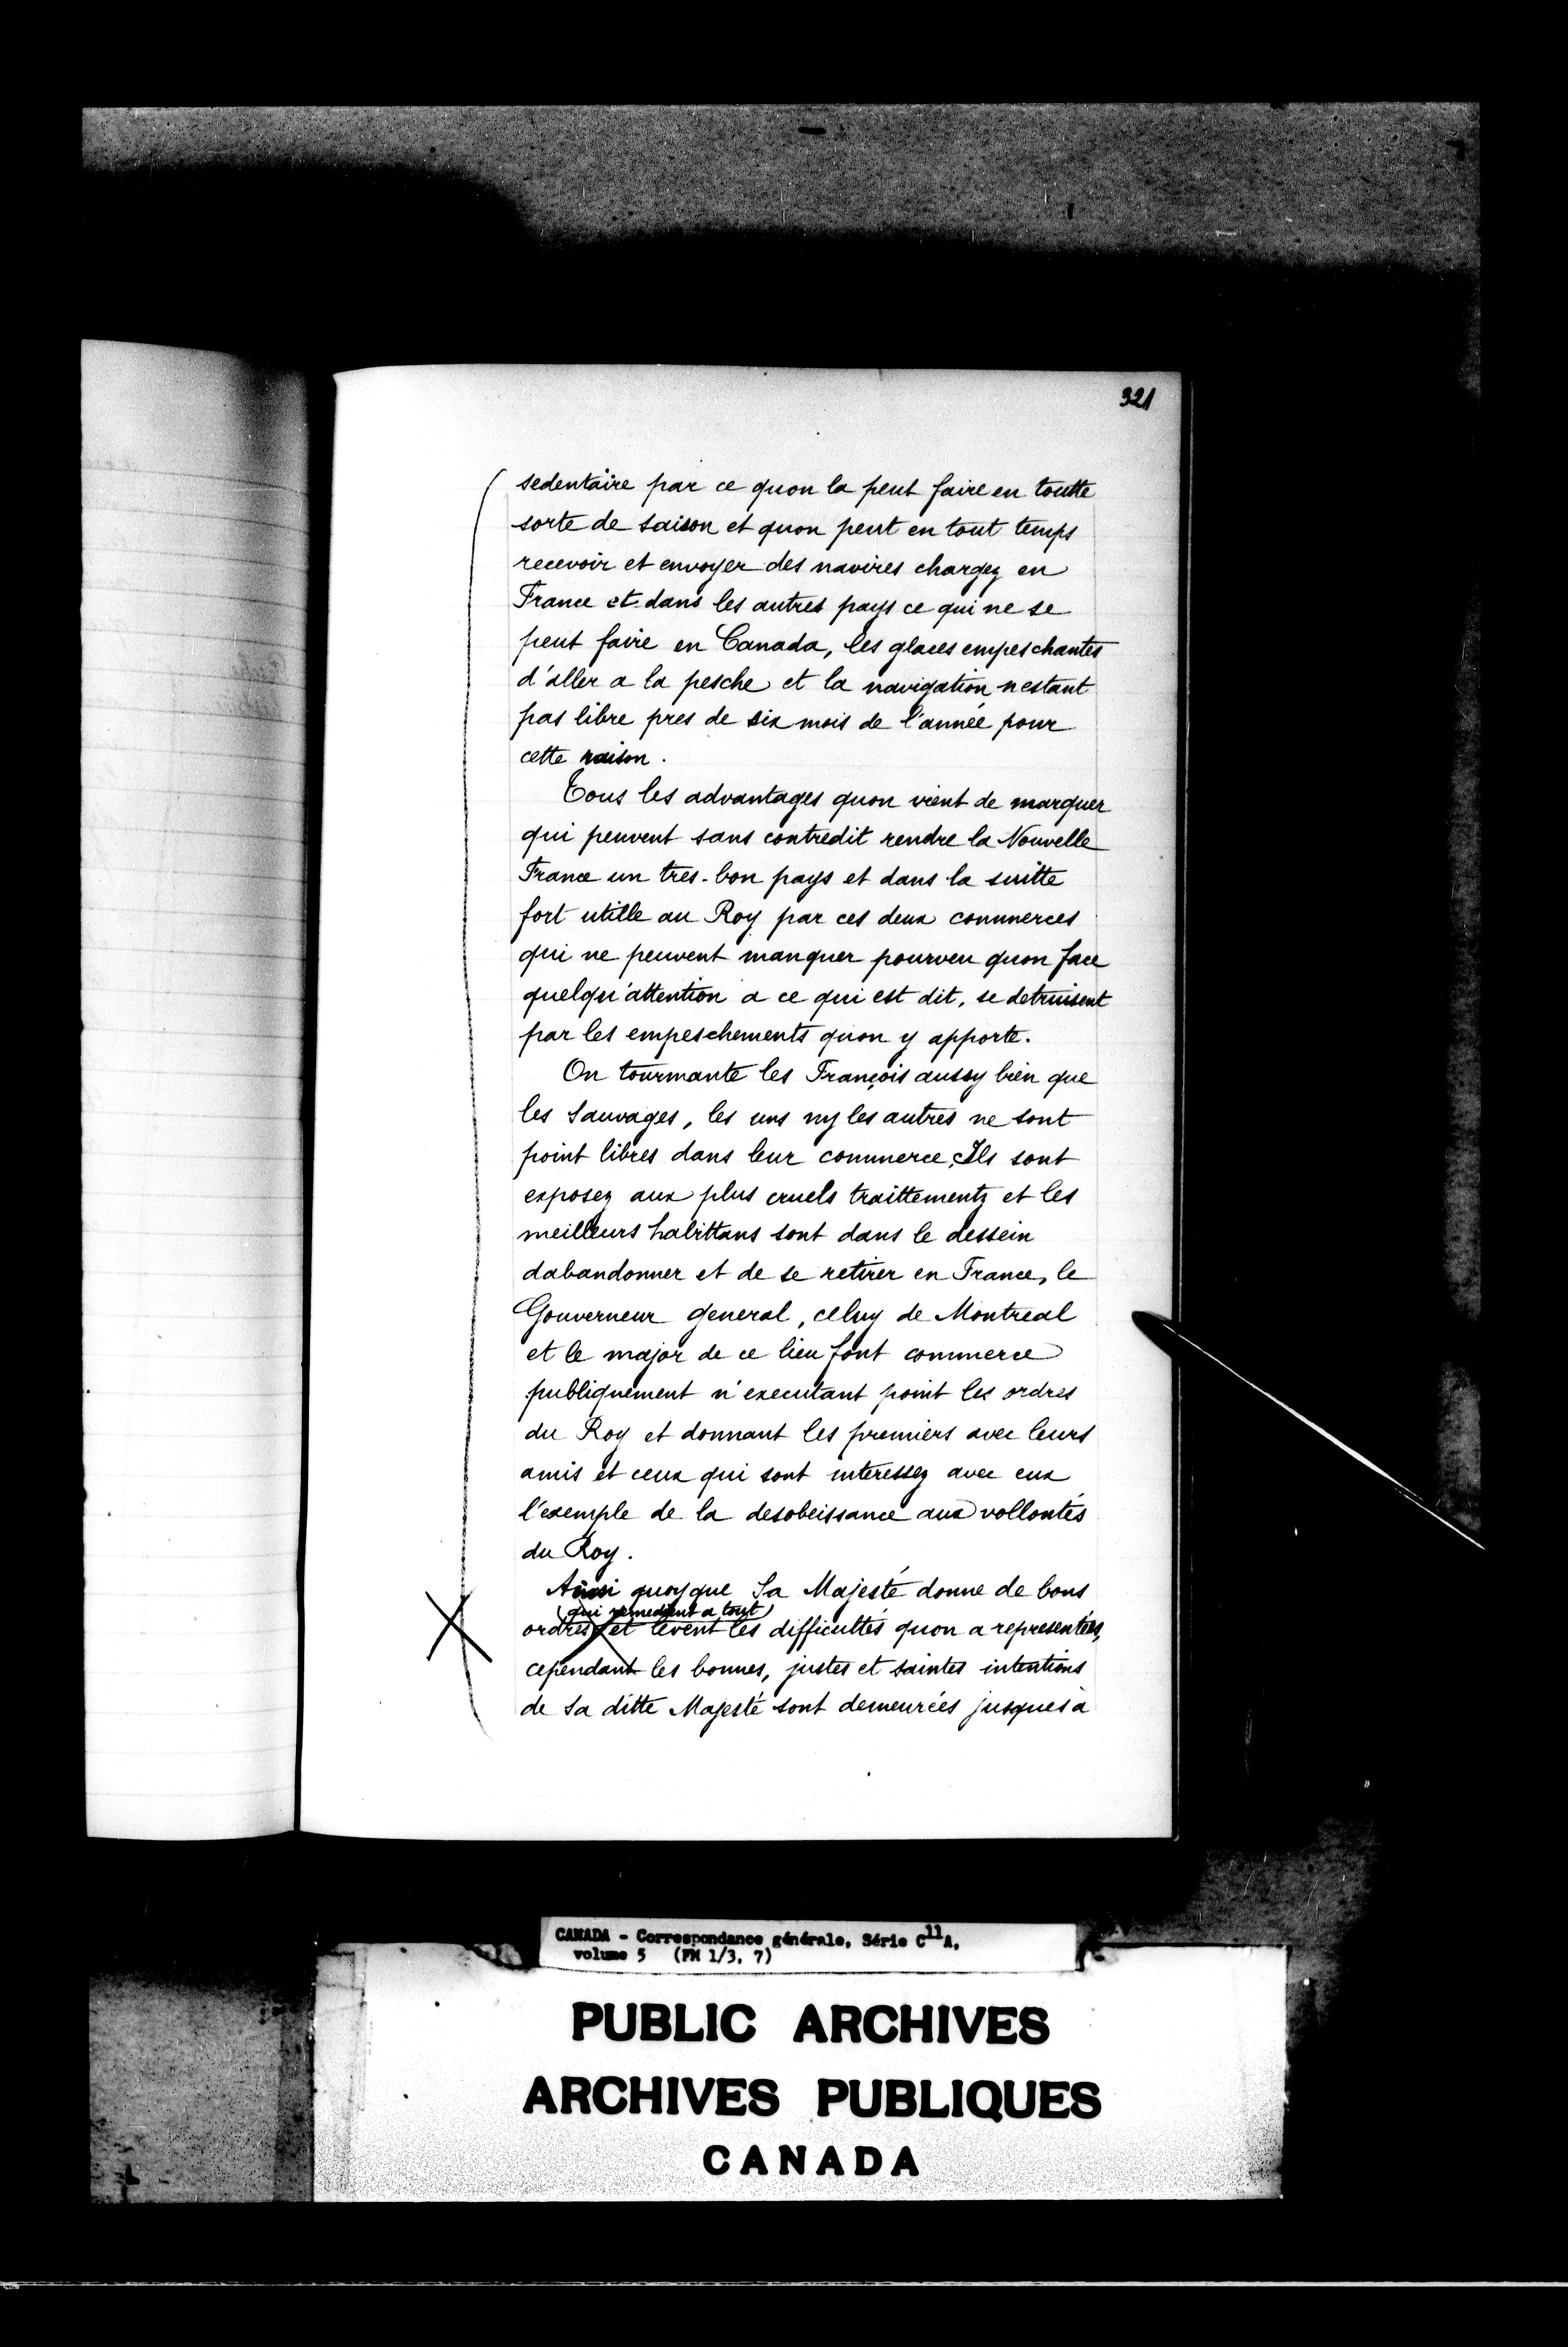 321
sedentaire par ce quon la peut faire en toutte
sorte de saison et quon peut en tout temps
recevoir et envoyer des navires chargez en
France et dans les autres pays ce qui ne se
peut faire en Canada, les glaces empeschantes
d'aller a la pesche et la navigation nestant
pas libre pres de six mois de l'année pour
cette raison.
Tous les advantages quon vient de marquer
qui peuvent sans contredit rendre la Nouvelle
France un tres-bon pays et dans la suitte
fort utille au Roy par ces deux commerces
qui ne peuvent manquer pourveu quon face
quelqu'attention a ce qui est dit, se detruisent
par les empeschements quon y apporte.
On tourmante les François aussy bien que
les Sauvages, les uns ny les autres ne sont
point libres dans leur commerce, Ils sont
exposez aux plus cruels traittementz et les
meilleurs habittans sont dans le dessein
dabandonner et de se retirer en France, le
Gouverneur general, celuy de Montreal
et le major de ce lieu font commerce
publiquement n'executant point les ordres
du Roy et donnant les premiers avec leurs
amis et ceux qui sont interessez avec eux
l'exemple de la desobeissance aux vollontés
du Roy.
Ainsi quoyque Sa Majesté donne de bons
(qui remedient a tout)
ordres et levent les difficultés quon a representées,
cependant les bonnes, justes et saintes intentions
de Sa ditte Majesté sont demeurées jusques à
CANADA - Correspondance générale, Série C11A,
volume 5 (FM 1/3, 7)
PUBLIC ARCHIVES
ARCHIVES PUBLIQUES
CANADA